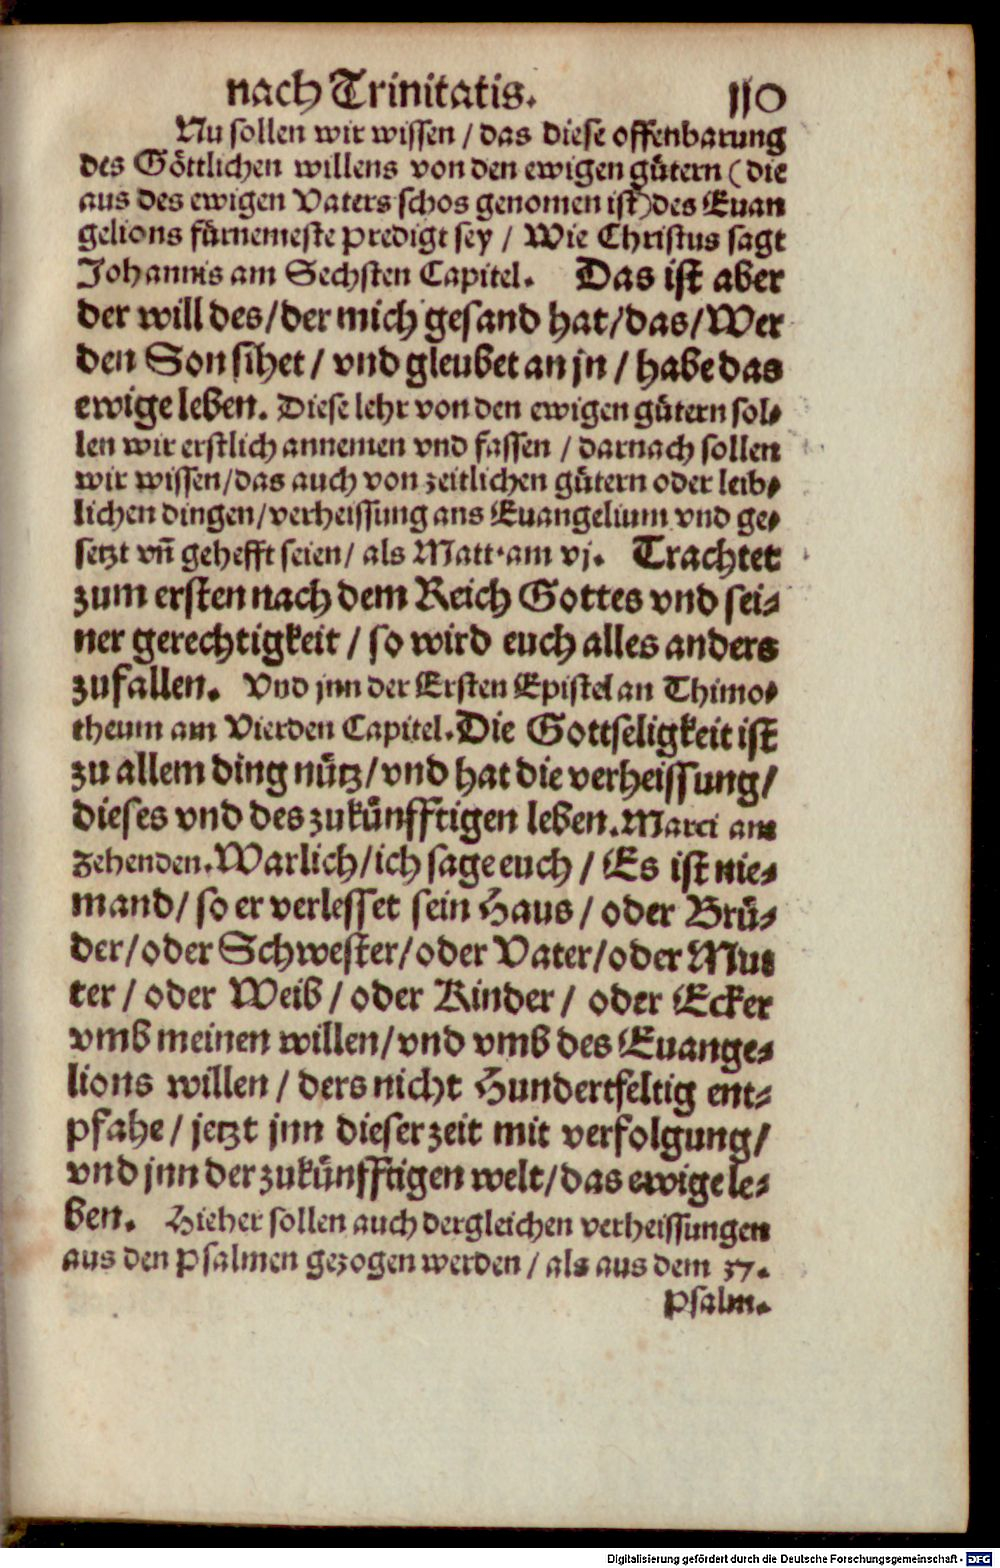 nach Trinitatis. 110
Nu sollen wir wissen / das diese offenbarung
des Göttlichen willens von den ewigen gütern (die
aus des ewigen Vaters schos genomen ist) des Euan
gelions fürnemeste predigt sey / Wie Christus sagt
Johannis am Sechsten Capitel. Das ist aber
der will des / der mich gesand hat / das / Wer
den Son sihet / vnd gleubet an jn / habe das
ewige leben. Diese lehr von den ewigen gütern sol⸗
len wir erstlich annemen vnd fassen / darnach sollen
wir wissen / das auch von zeitlichen gütern oder leib⸗
lichen dingen / verheissung ans Euangelium vnd ge⸗
setzt vn̄ gehefft seien / als Matt. am vj. Trachtet
zum ersten nach dem Reich Gottes vnd sei⸗
ner gerechtigkeit / so wird euch alles anders
zufallen. Vnd jnn der Ersten Epistel an Thimo⸗
theum am Vierden Capitel. Die Gottseligkeit ist
zu allem ding nütz / vnd hat die verheissung /
dieses vnd des zukünfftigen leben. Marci am
zehenden. Warlich / ich sage euch / Es ist nie⸗
mand / so er verlesset sein Haus / oder Brü⸗
der / oder Schwester / oder Vater / oder Mut
ter / oder Weib / oder Kinder / oder Ecker
vmb meinen willen / vnd vmb des Euange⸗
lions willen / ders nicht Hundertfeltig ent⸗
pfahe / jetzt jnn dieser zeit mit verfolgung /
vnd jnn der zukünfftigen welt / das ewige le⸗
ben. Hieher sollen auch dergleichen verheissungen
aus den Psalmen gezogen werden / als aus dem 37.
Psalm.
Digitalisierung gefördert durch die Deutsche Forschungsgemeinschaft - DFG